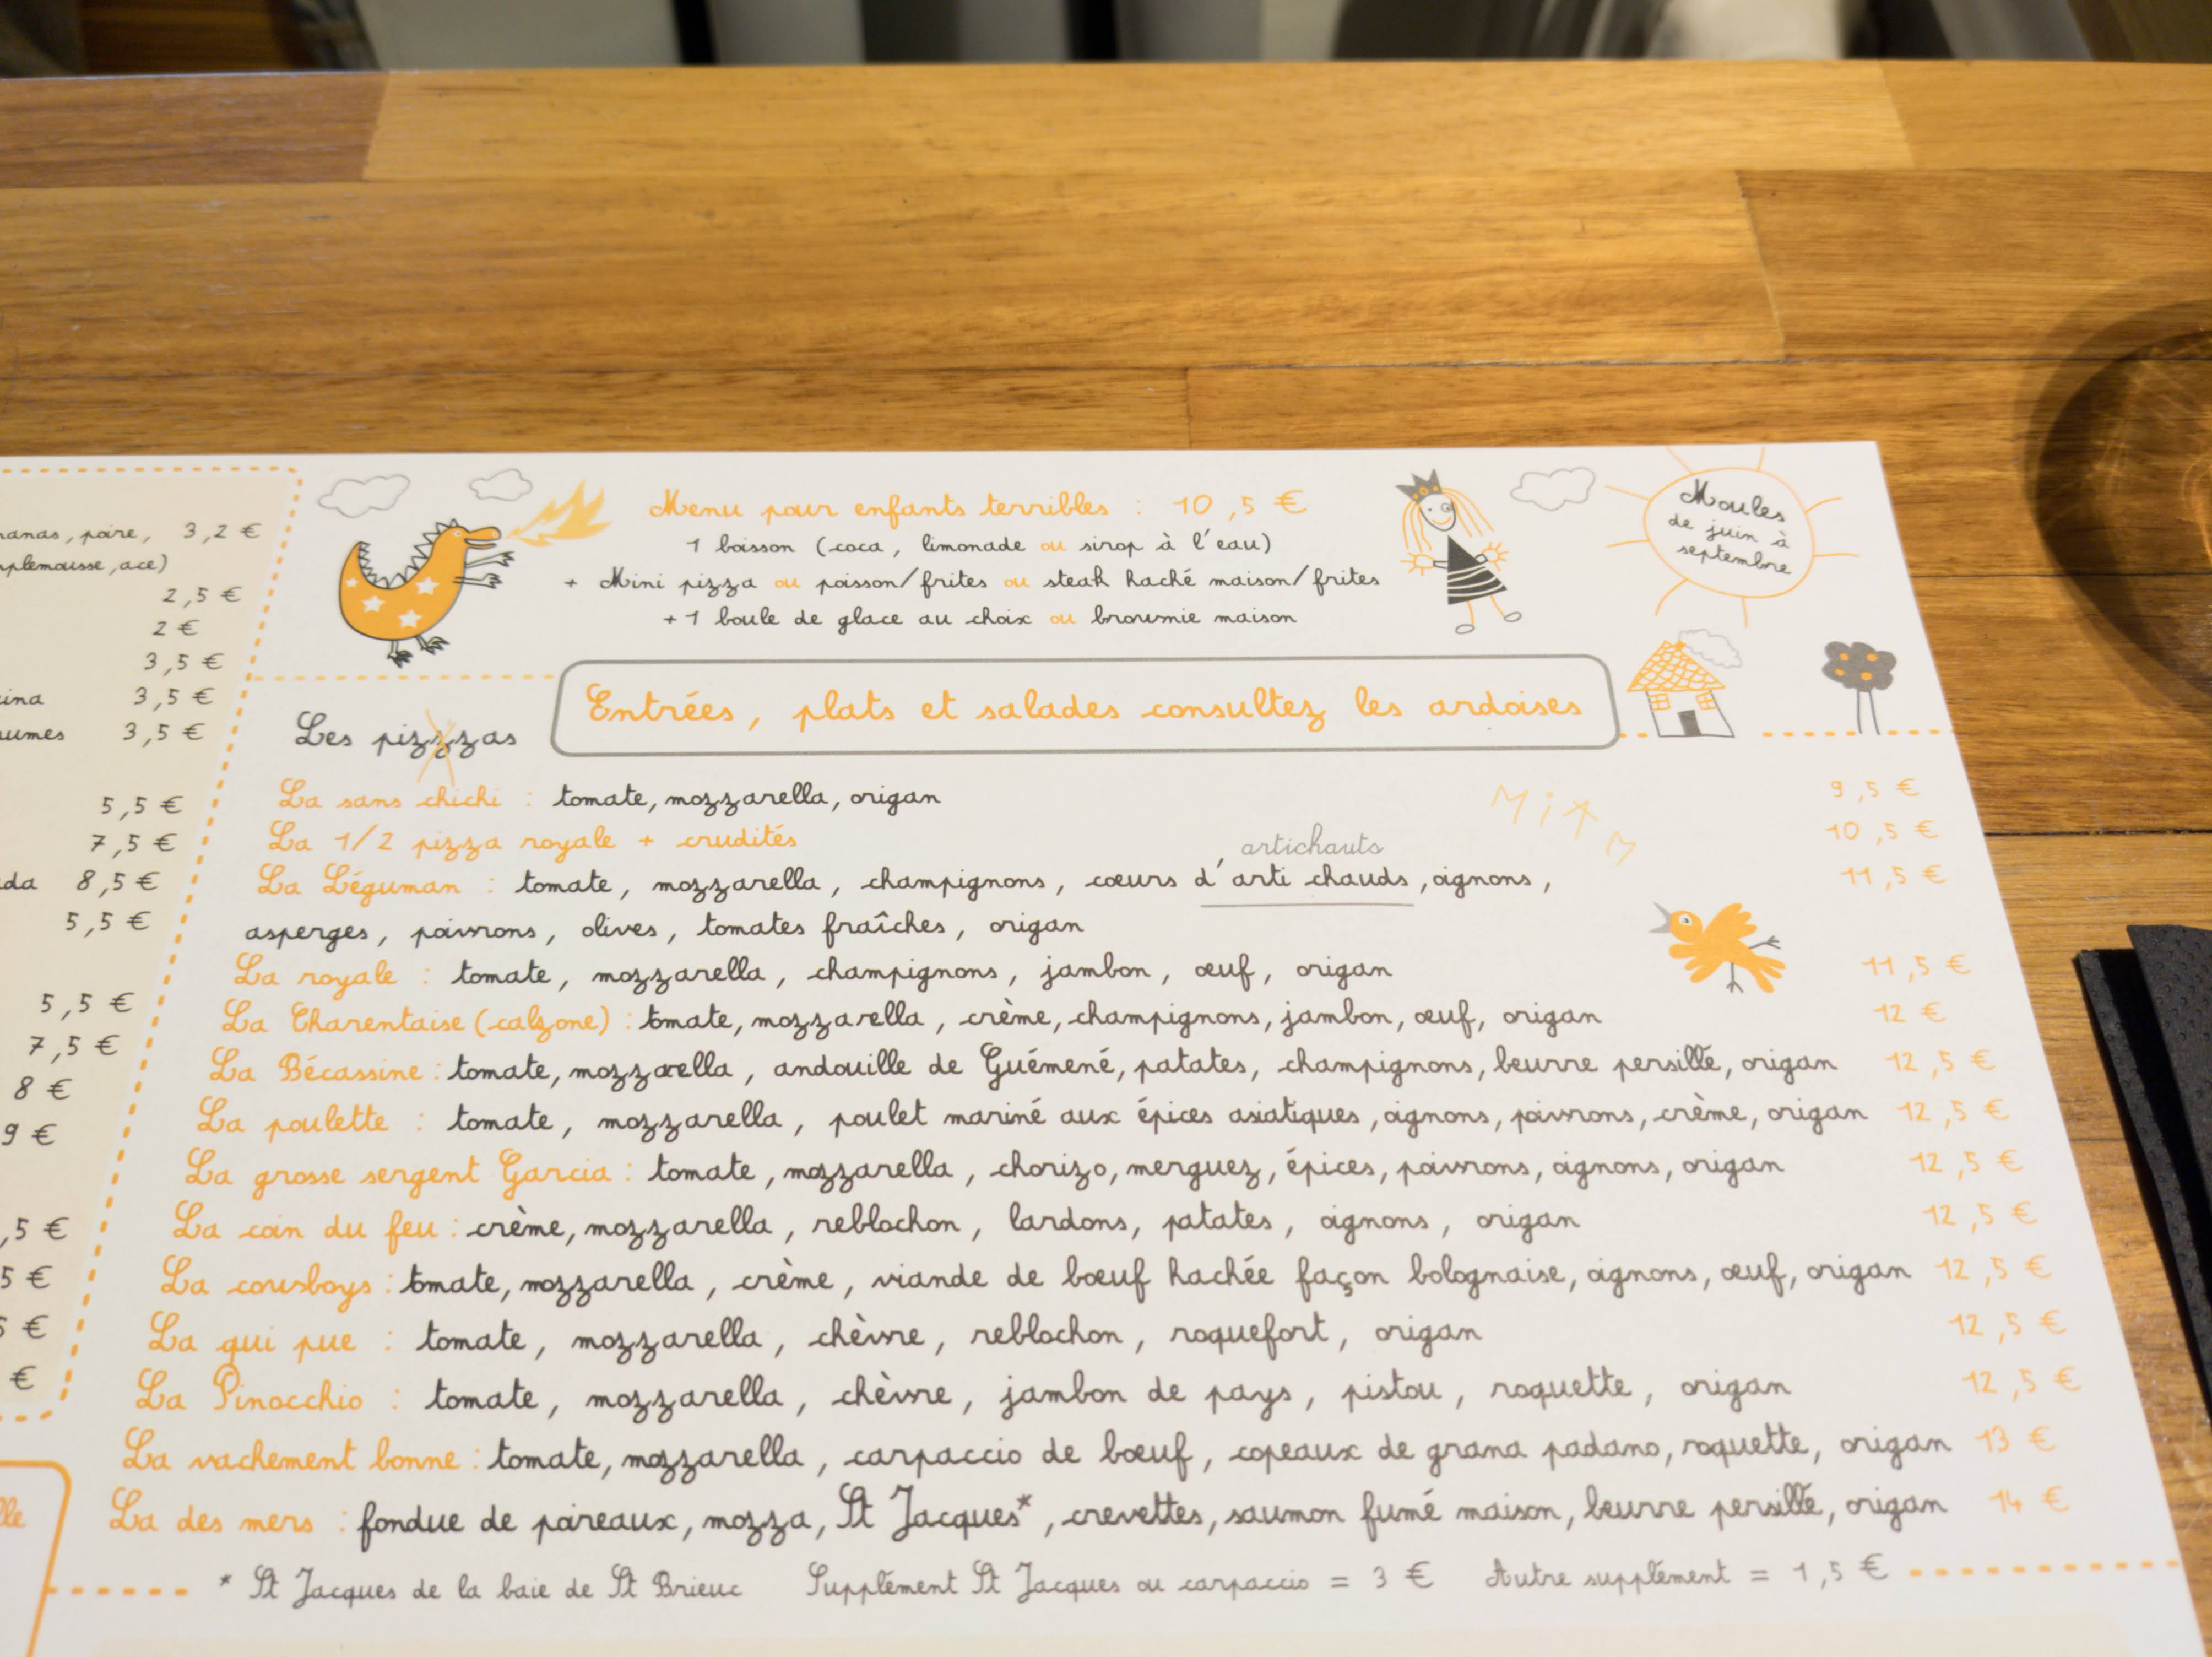 anas, poire, 3,2 €
mplemousse, ace)
2,5 €
2 €
3,5 €
ina 3,5 €
umes 3,5 €
5,5 €
7,5 €
da 8,5 €
5,5 €
5,5 €
7,5 €
8 €
9 €
,5 €
5 €
5 €
€
lle
Menu pour enfants terribles : 10,5 €
1 boisson (coca, limonade ou sirop à l'eau)
+ Mini pizza ou poisson/frites ou steak haché maison/frites
+ 1 boule de glace au choix ou brownie maison
Moules
de juin à
septembre
Entrées, plats et salades consultez les ardoises
Les pizzzas
MiAM
La sans chichi : tomate, mozzarella, origan 9,5 €
La 1/2 pizza royale + crudités 10,5 €
artichauts
La Léguman : tomate, mozzarella, champignons, cœurs d'arti chauds, oignons, 11,5 €
asperges, poivrons, olives, tomates fraîches, origan
La royale : tomate, mozzarella, champignons, jambon, œuf, origan 11,5 €
La Charentaise (calzone) : tomate, mozzarella, crème, champignons, jambon, œuf, origan 12 €
La Bécassine : tomate, mozzarella, andouille de Guémené, patates, champignons, beurre persillé, origan 12,5 €
La poulette : tomate, mozzarella, poulet mariné aux épices asiatiques, oignons, poivrons, crème, origan 12,5 €
La grosse sergent Garcia : tomate, mozzarella, chorizo, merguez, épices, poivrons, oignons, origan 12,5 €
La coin du feu : crème, mozzarella, reblochon, lardons, patates, oignons, origan 12,5 €
La cowboys : tomate, mozzarella, crème, viande de bœuf hachée façon bolognaise, oignons, œuf, origan 12,5 €
La qui pue : tomate, mozzarella, chèvre, reblochon, roquefort, origan 12,5 €
La Pinocchio : tomate, mozzarella, chèvre, jambon de pays, pistou, roquette, origan 12,5 €
La vachement bonne : tomate, mozzarella, carpaccio de bœuf, copeaux de grana padano, roquette, origan 13 €
La des mers : fondue de poireaux, mozza, St Jacques*, crevettes, saumon fumé maison, beurre persillé, origan 14 €
* St Jacques de la baie de St Brieuc Supplément St Jacques ou carpaccio = 3 € Autre supplément = 1,5 €